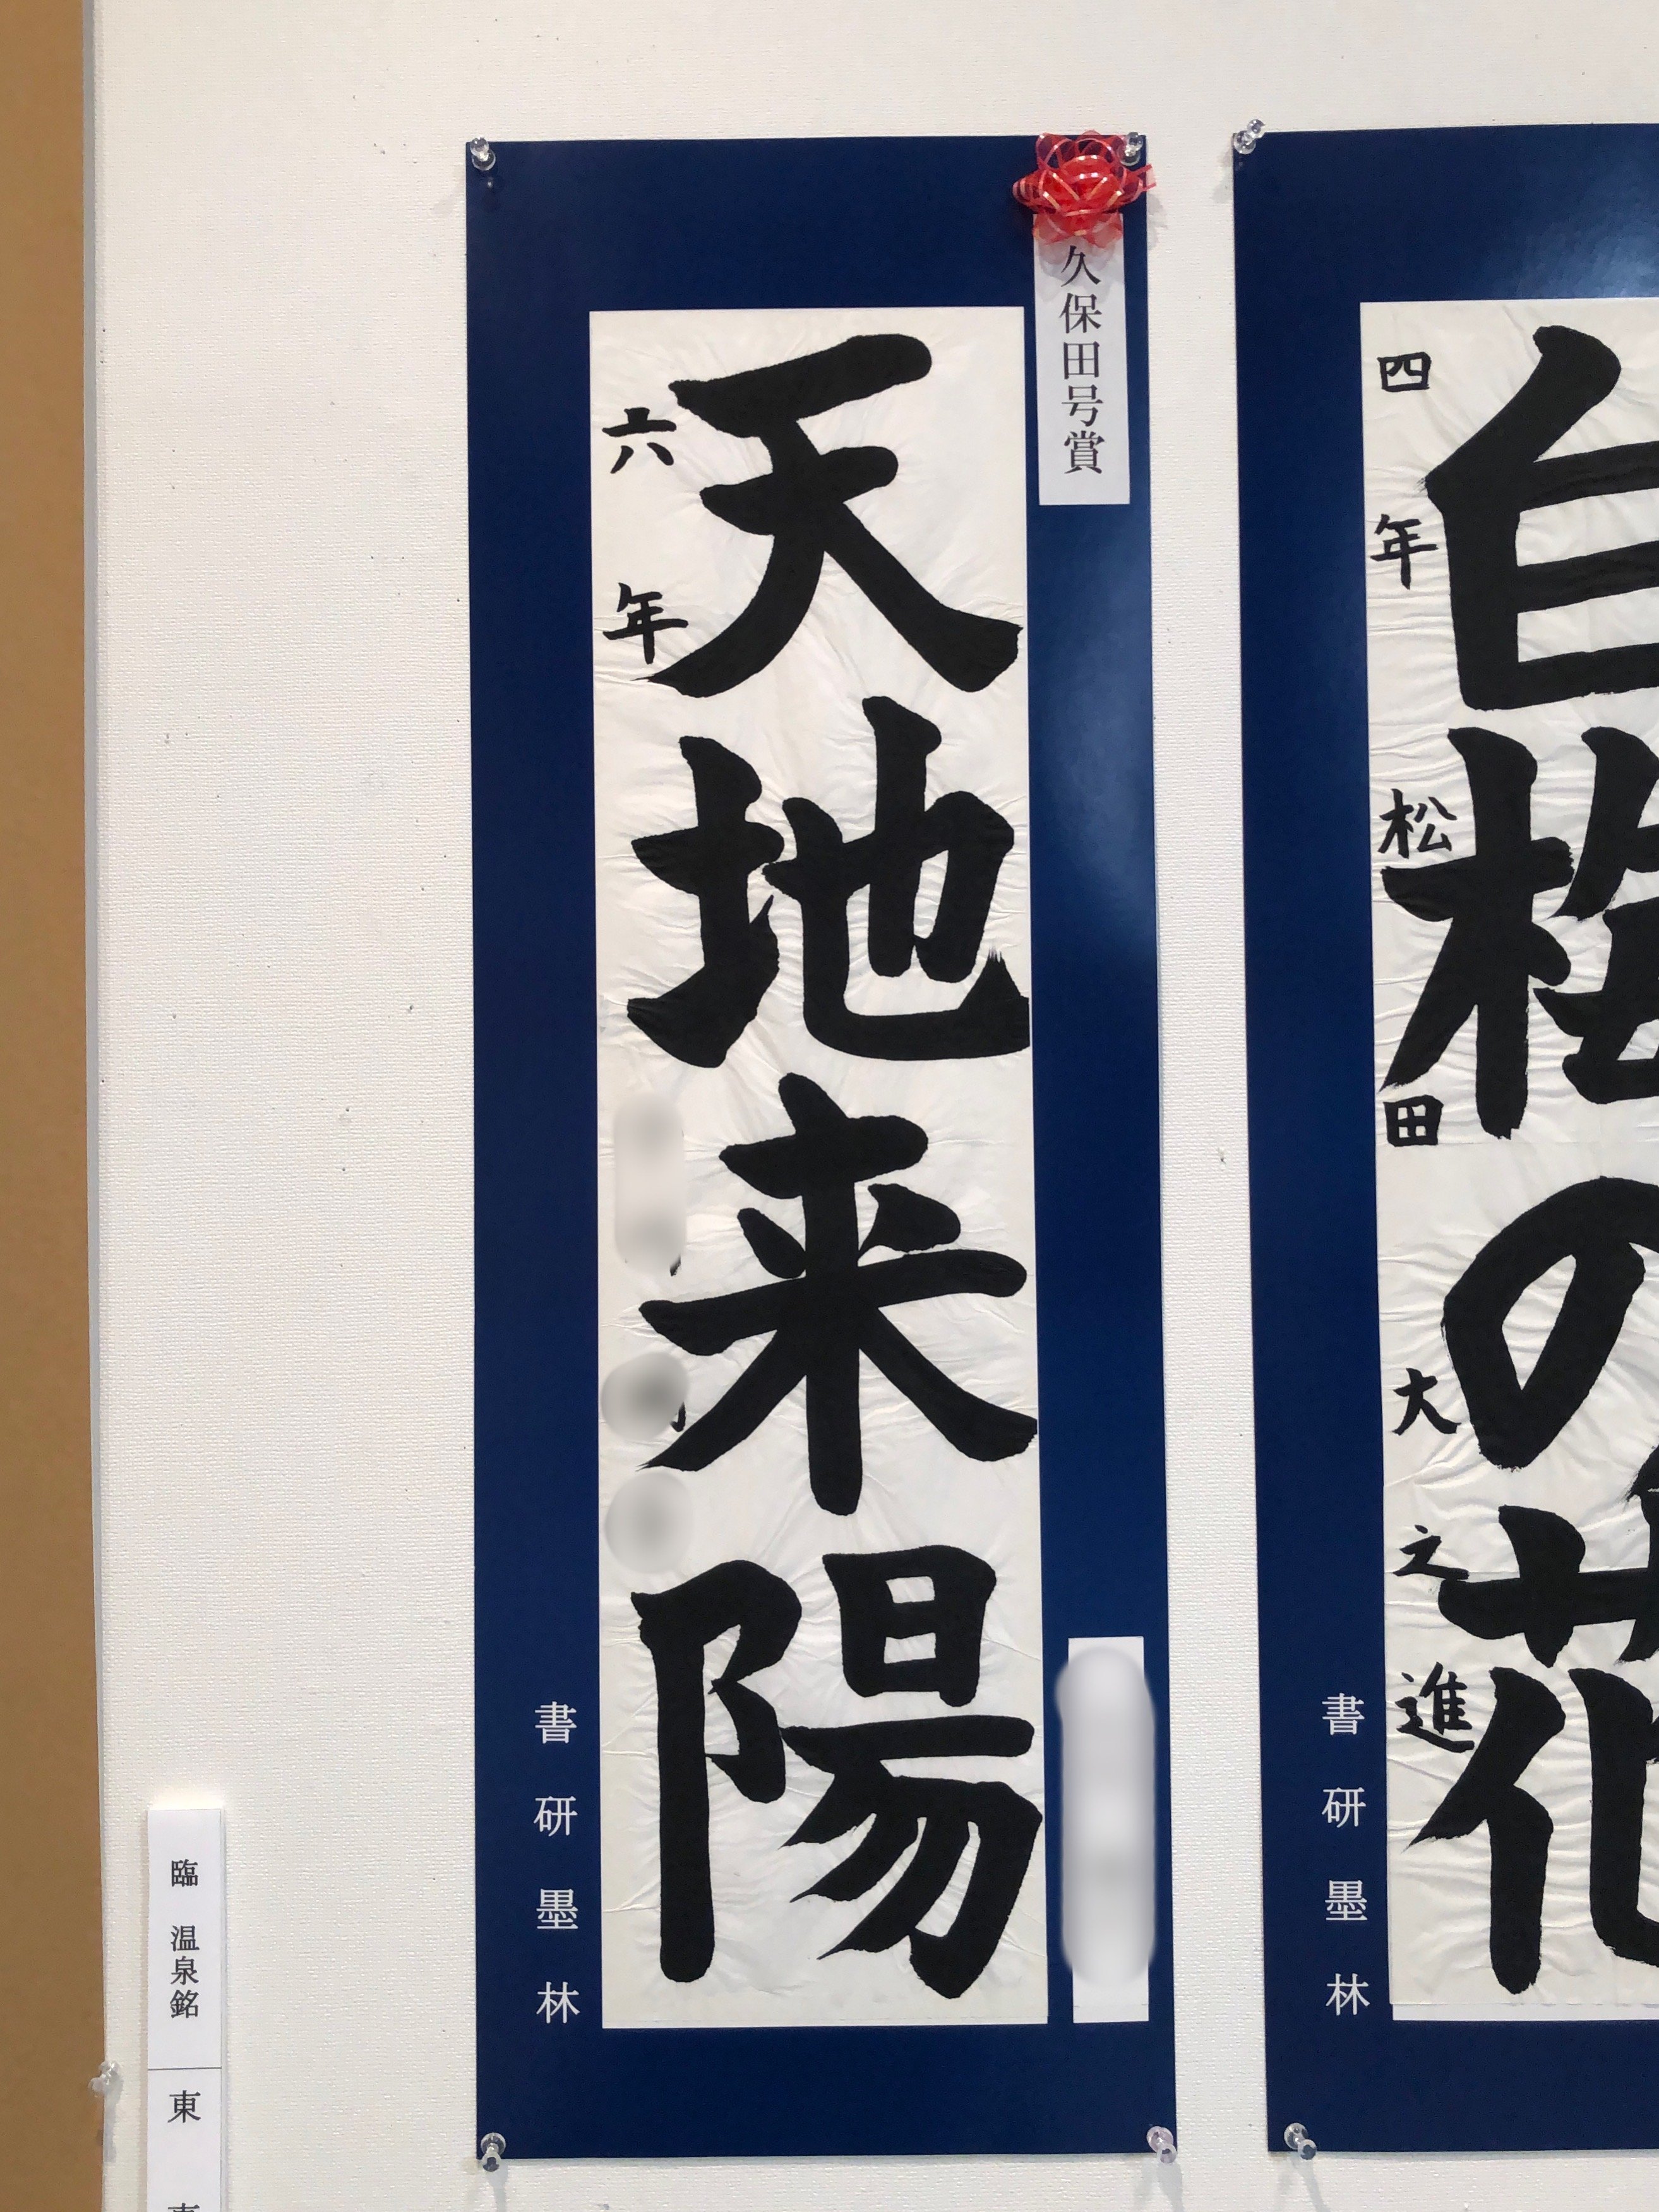 久保田号賞
天地来陽
六年
書研墨林
白梅の花
四年 松田大之進
書研墨林
臨 温泉銘
東